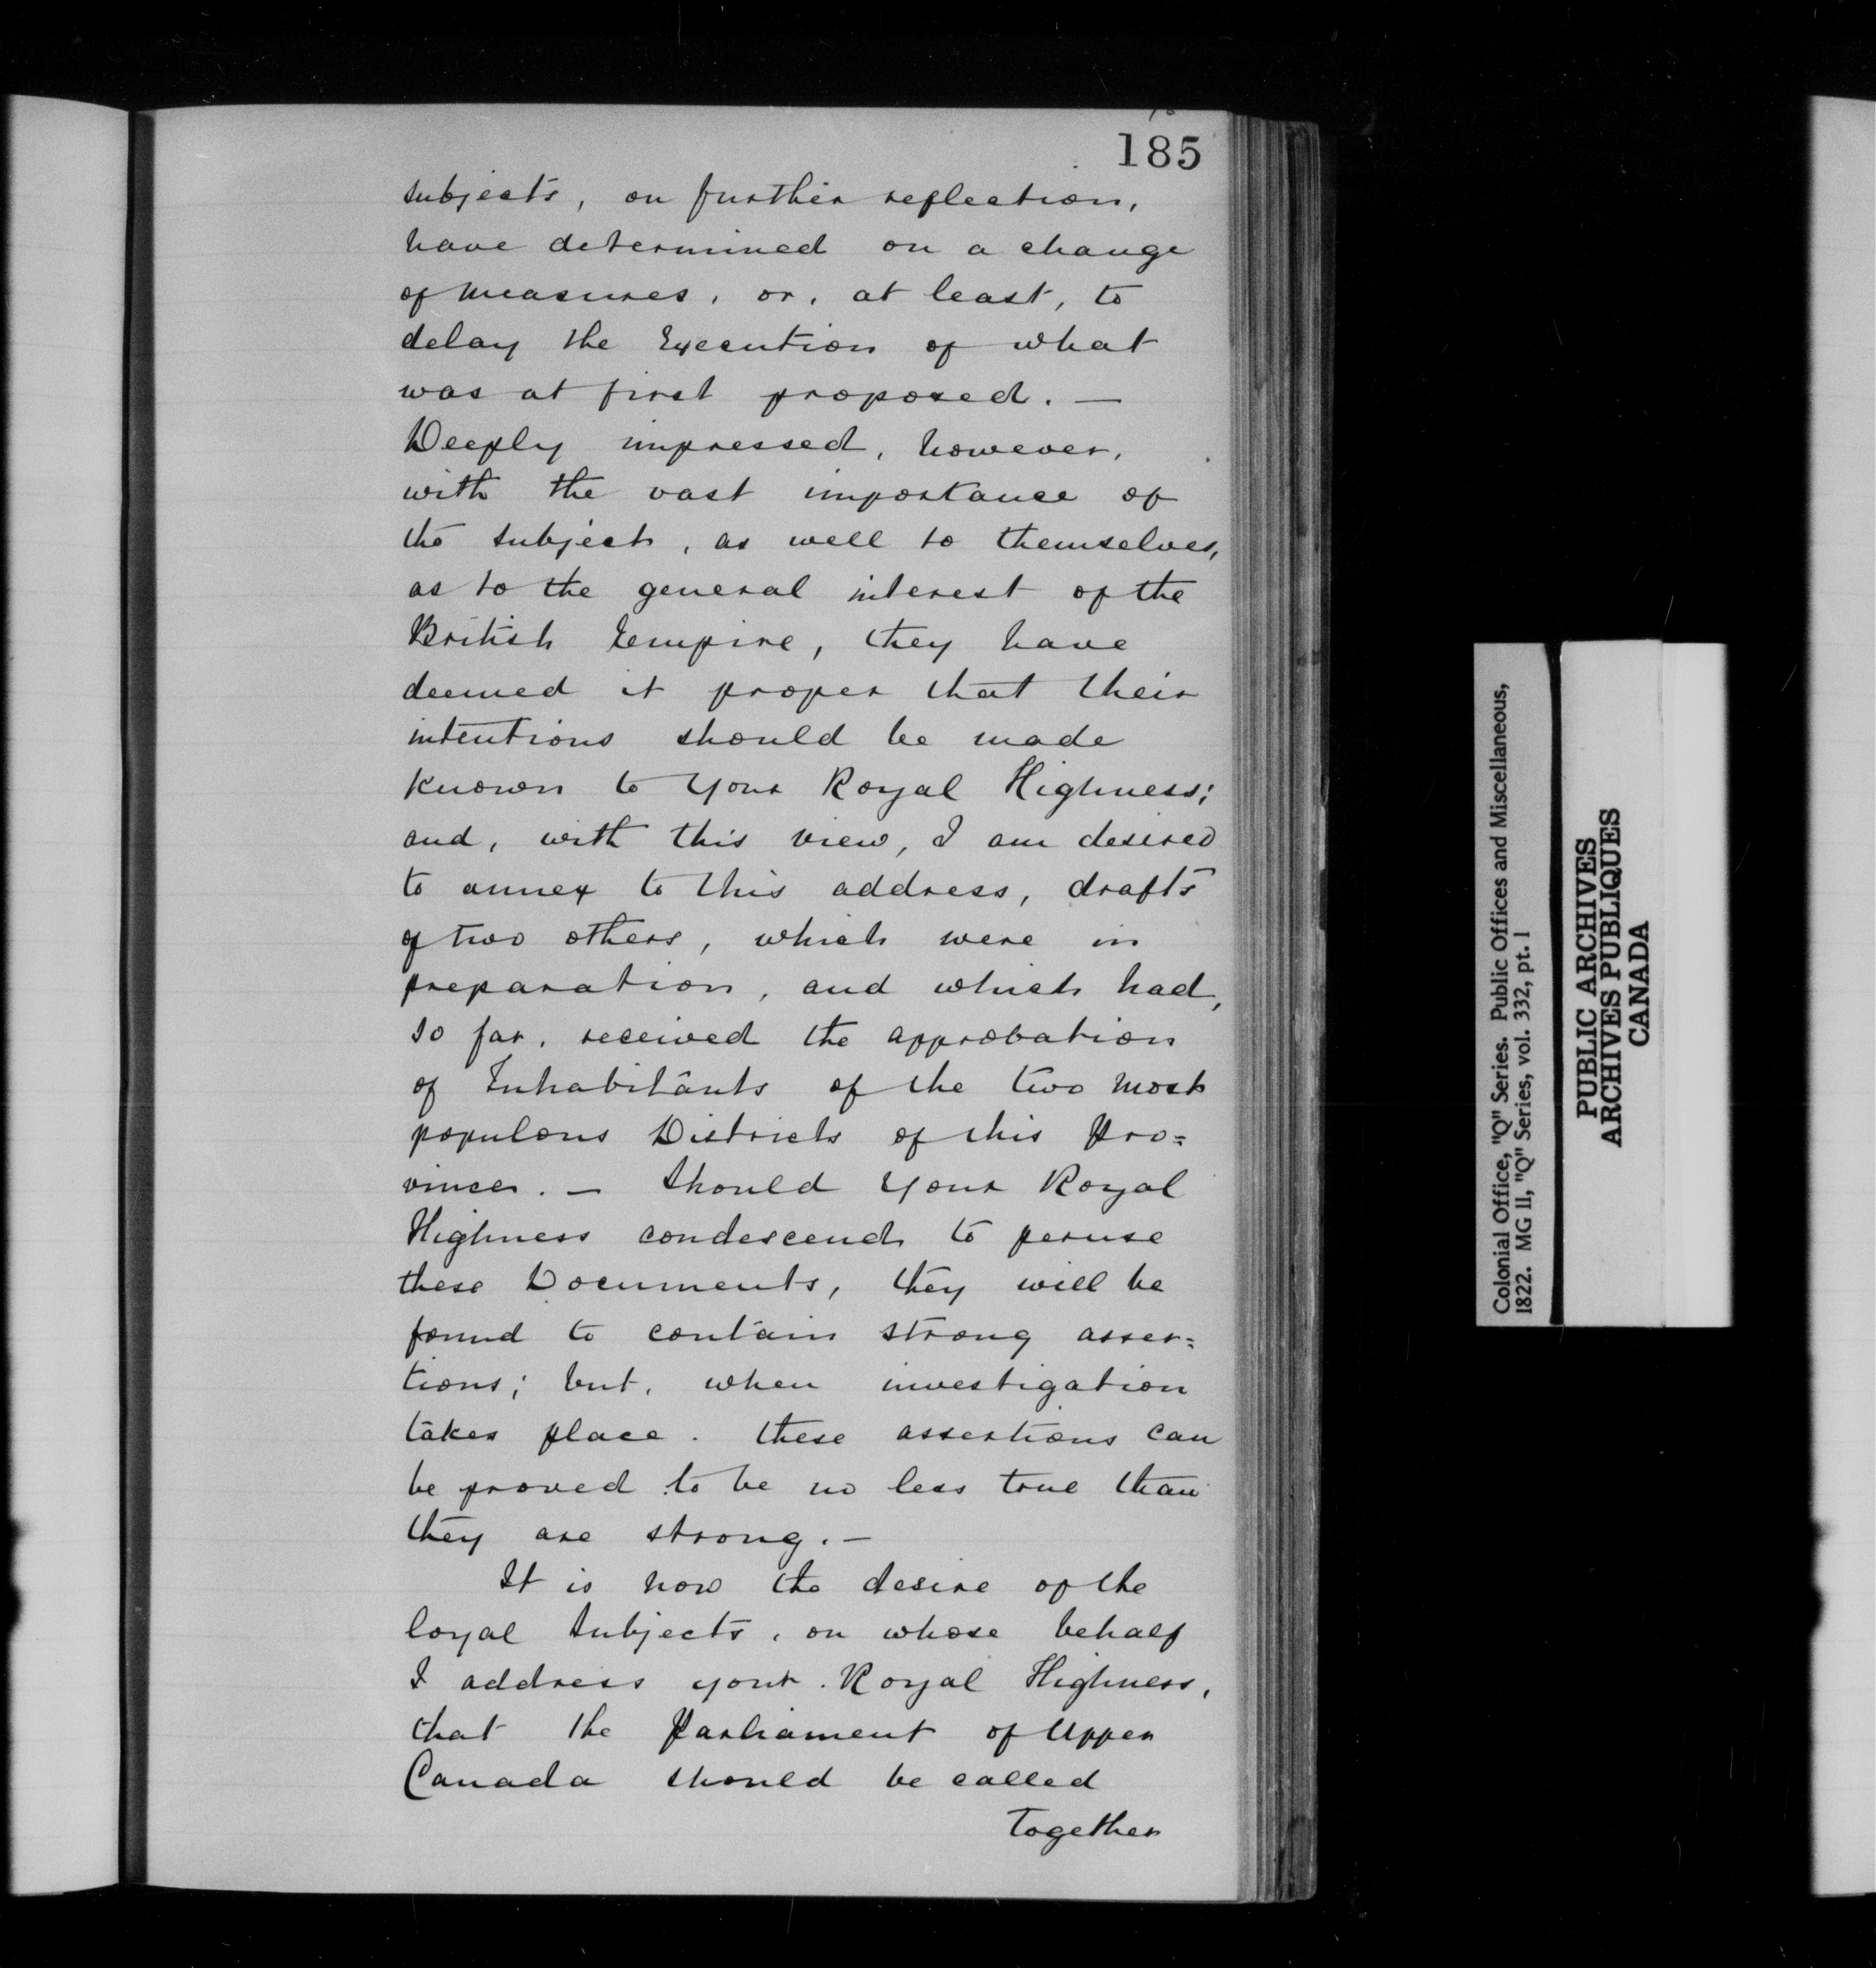 185
subjects, on further reflection,
have determined on a change
of measures, or, at least, to
delay the Execution of what
was at first proposed. —
Deeply impressed, however,
with the vast importance of
the subject, as well to themselves,
as to the general interest of the
British Empire, they have
deemed it proper that their
intentions should be made
known to Your Royal Highness;
and, with this view, I am desired
to annex to this address, drafts
of two others, which were in
preparation, and which had,
so far, received the approbation
of Inhabitants of the two most
populous Districts of this Pro=
vince. — Should Your Royal
Highness condescend to peruse
these Documents, they will be
found to contain strong asser=
tions; but, when investigation
takes place. these assertions can
be proved to be no less true than
they are strong. —
It is now the desire of the
loyal Subjects, on whose behalf
I address your Royal Highness,
that the Parliament of Upper
Canada should be called
Together
Colonial Office, "Q" Series. Public Offices and Miscellaneous,
1822. MG 11, "Q" Series, vol. 332, pt. 1
PUBLIC ARCHIVES
ARCHIVES PUBLIQUES
CANADA